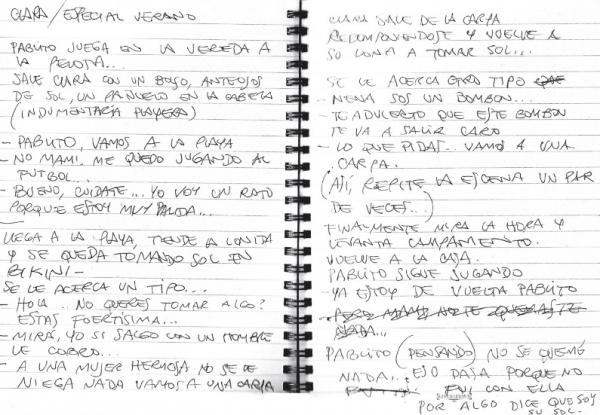 CLARA / ESPECIAL VERANO
PABLITO JUEGA EN LA VEREDA A
LA PELOTA...
SALE CLARA CON UN BOLSO, ANTEOJOS
DE SOL, UN PAÑUELO EN LA CABEZA
(INDUMENTARIA PLAYERA)
- PABLITO, VAMOS A LA PLAYA
- NO MAMI. ME QUEDO JUGANDO AL
FUTBOL...
- BUENO, CUIDATE... YO VOY UN RATO
PORQUE ESTOY MUY PALIDA...
LLEGA A LA PLAYA, TIENDE LA LONITA
Y SE QUEDA TOMANDO SOL EN
BIKINI -
SE LE ACERCA UN TIPO...
- HOLA.. NO QUERES TOMAR ALGO?
ESTAS FUERTISIMA...
- MIRÁ, YO SI SALGO CON UN HOMBRE
LE COBRO...
- A UNA MUJER HERMOSA NO SE LE
NIEGA NADA VAMOS A UNA CARPA
CLARA SALE DE LA CARPA
RECOMPONIENDOSE Y VUELVE A
SU LONA A TOMAR SOL...
SE LE ACERCA OTRO TIPO
- NENA SOS UN BOMBON...
- TE ADVIERTO QUE ESTE BOMBON
TE VA A SALIR CARO
- LO QUE PIDAS... VAMOS A UNA
CARPA.
(ASÍ, REPITE LA ESCENA UN PAR
DE VECES...)
FINALMENTE MIRA LA HORA Y
LEVANTA CAMPAMENTO.
VUELVE A LA CASA.
PABLITO SIGUE JUGANDO
- YA ESTOY DE VUELTA PABLITO
- PERO MAMI NO TE QUEMASTE
NADA...
PABLITO (PENSANDO) NO SE QUEMÓ
NADA... ESO PASA PORQUE NO
FUI CON ELLA
POR ALGO DICE QUE SOY
SU SOL.